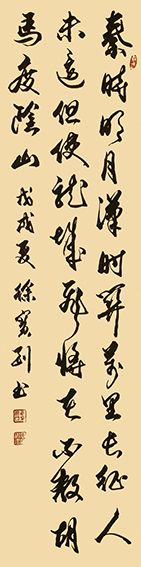 秦时明月漢时関萬里長征人
未還但使龍城飛将在不教胡
馬度陰山戊戌夏徐宏列书